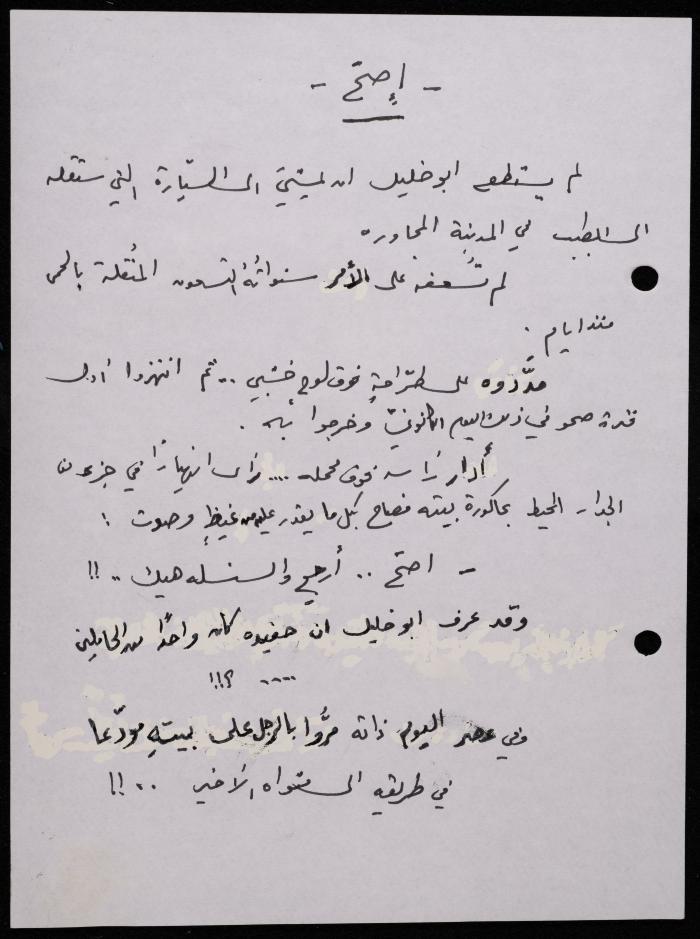 - إصتح -
لم يستطع ابو خليل ان يمشي الى السيّارة التي ستقله
الى الطبيب في المدينة المجاوره
لم تُسعفه على الأمر سنواتُهُ التسعون المُثقلة بالحمى
منذ ايام .
مدَّدوه على طرّاحةٍ فوق لوح خشبي .. ثم انتهزوا أول
فترة صحو في ذلك اليوم الكانونيّ وخرجوا به .
أدار رأسه فوق محمله .... رأى انهيارًا في جزء من
الجدار المحيط بحاكورة بيته فصاح بكل ما يقدر عليه من غيظٍ وصوت :
- اصتح .. أرجع والسنسله هيك .. !!
وقد عرف ابو خليل ان حفيده كان واحدًا من الحاملين
.... ؟!!
وفي عصر اليوم ذاته مرُّوا بالرجل على بيتهِ مودّعا
في طريقه الى مثواه الأخير .. !!